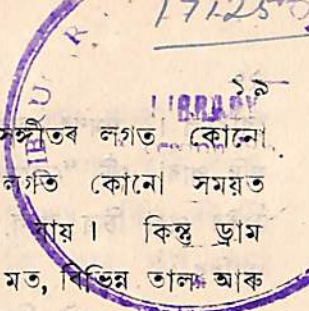 171250
১৯
LIBRARY
সঙ্গীতৰ লগত কোনো
লগতি কোনো সময়ত
যায় । কিন্তু ড্ৰাম
মত, বিভিন্ন তাল আৰু